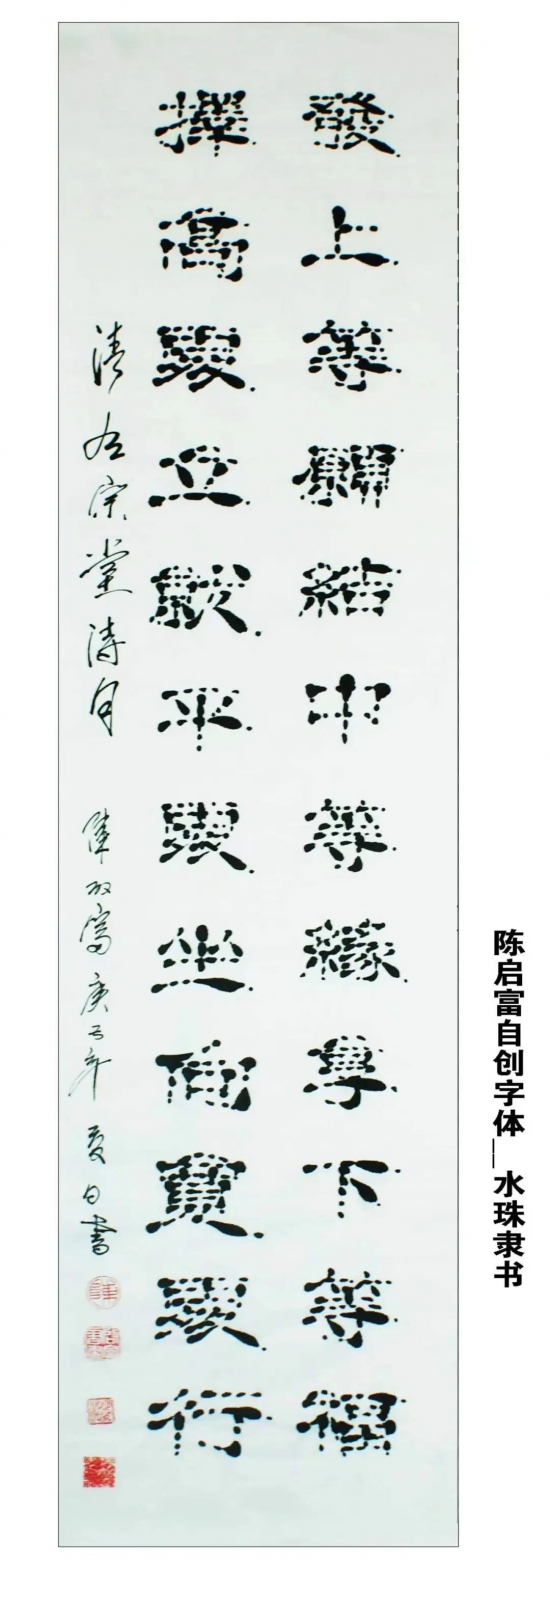 發上等願結中等緣享下等福
擇高處立就平處坐向寬處行
清左宗棠詩句
陳啟富庚子年夏日書
陈启富自创字体_水珠隶书